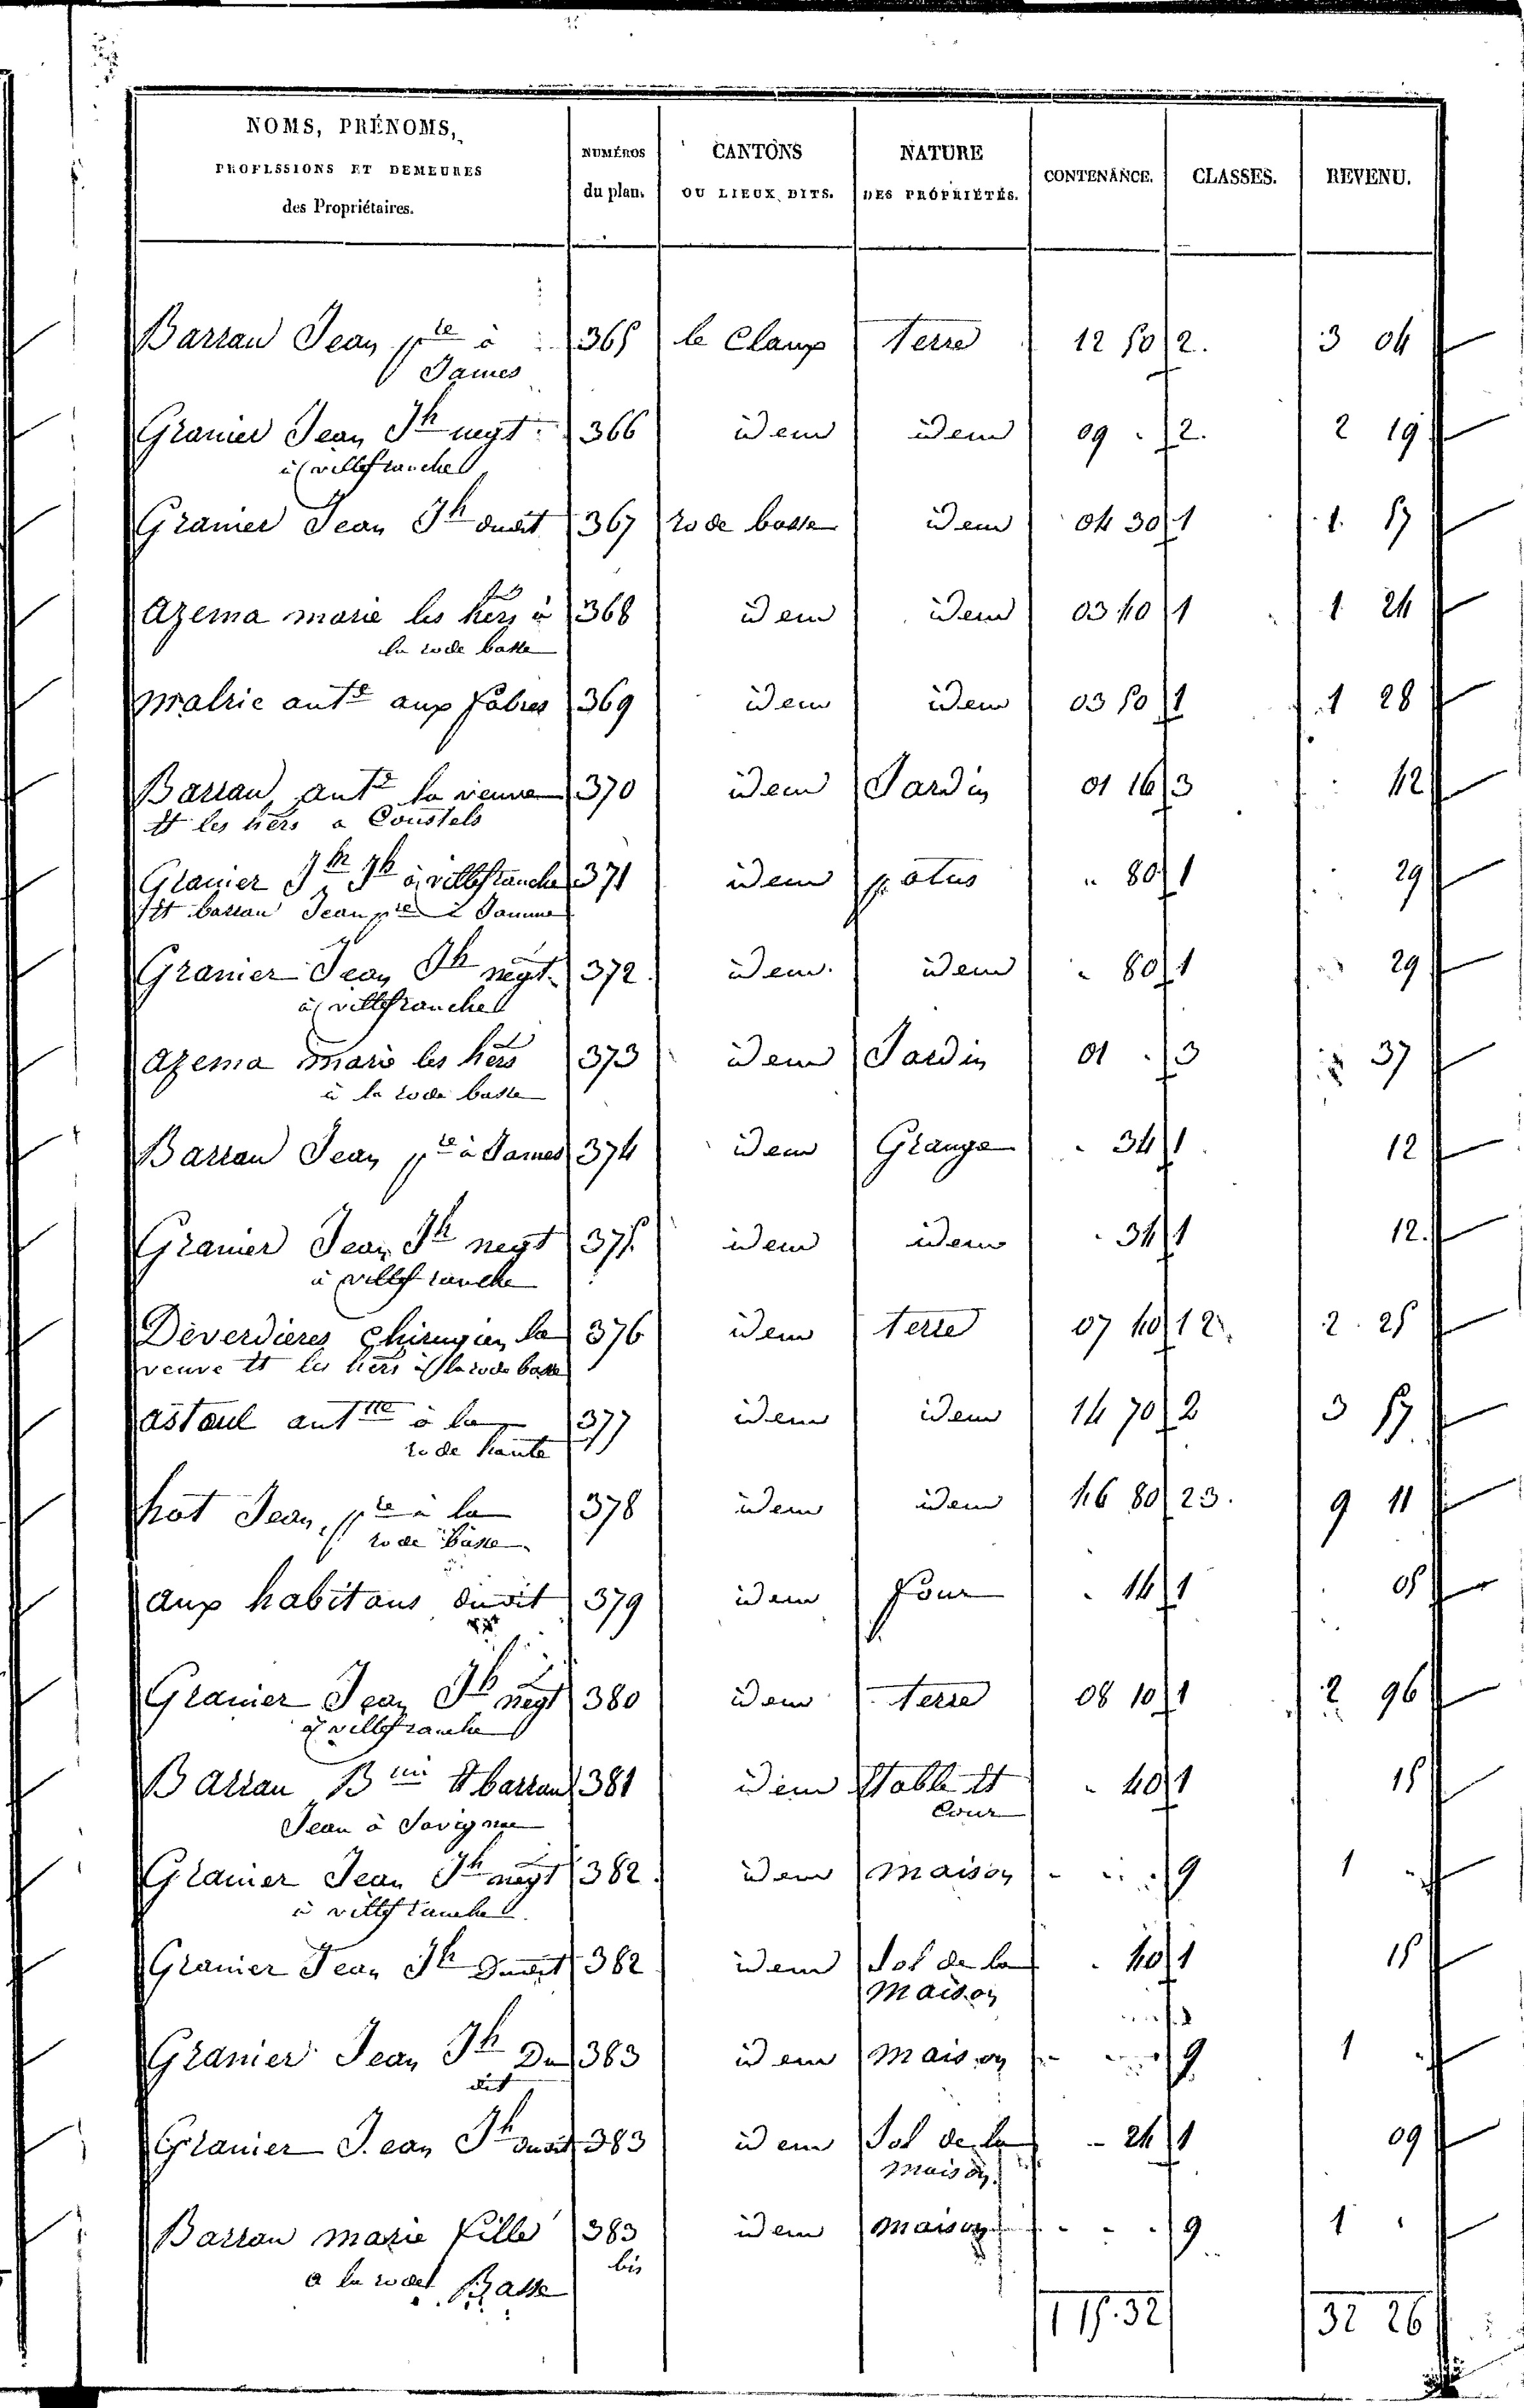 NOMS, PRÉNOMS,
PROFESSIONS ET DEMEURES
des Propriétaires.
NUMÉROS
du plan.
CANTONS
OU LIEUX DITS.
NATURE
DES PROPRIÉTÉS.
CONTENANCE.
CLASSES.
REVENU.
Barrau Jean pre à 365 le Claux terre 12 50 2. 3 04
James
Granier Jean Jh negt 366 idem idem 09 . 2. 2 19
à villefranche
Granier Jean Jh dudit 367 rode basse idem 04 30 1 1. 57
azema marie les hers à 368 idem idem 03 40 1 1 24
la rode basse
malric ante aux fabres 369 idem idem 03 50 1 1 28
Barrau ante la veuve 370 idem Jardin 01 16 3 42
et les hers a Coustels
Granier Jn Jh à villefranche 371 idem patus 80 1 29
et barrau Jean pre à Jamme
Granier Jean Jh negt. 372. idem. idem 80 1 29
à villefranche
azema marie les hers 373 idem Jardin 01 . 3 37
à la rode basse
Barrau Jean pre à James 374 idem Grange 34 1 12
Granier Jean Jh negt 375. idem idem 34 1 12.
à villefranche
Déverdières chirugien la 376 idem terre 07 40 12 2. 25
veuve et les hers à la rode basse
astoul antne à la 377 idem idem 14 70 2 3 57
rode haute
hot Jean pre à la 378 idem idem 46 80 23. 9 11
rode basse.
aux habitans dudit 379 idem four 14 1 05
Granier Jean Jh negt 380 idem terre 08 10 1 2 96
à villefranche
Barrau Bmi et barrau 381 idem Etable et 40 1 15
Jean à Savignac cour
Granier Jean Jh negt 382. idem maison 9 1
à villefranche.
Granier Jean Jh Dudit 382 idem Sol de la 40 1 15
maison
Granier Jean Jh Du 383 idem maison 9 1
dit
Granier Jean Jh dudit 383 idem Sol de la 24 1 09
maison
Barrau marie fille 383 idem maison 9 1
bis
a la rode Basse
1 15.32 32 26